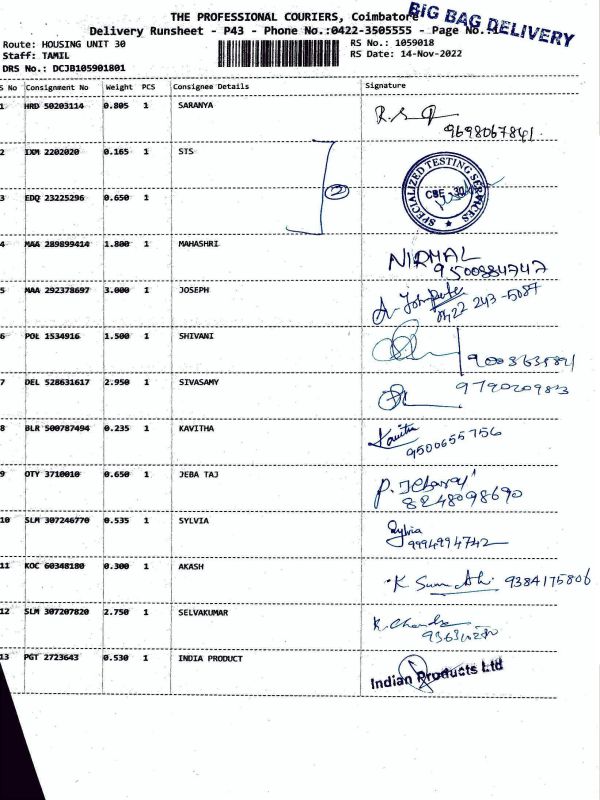 THE PROFESSIONAL COURIERS, Coimbatore
BIG BAG DELIVERY
Delivery Runsheet - P43 - Phone No.:0422-3505555 - Page No.
Route: HOUSING UNIT 30
RS No.: 1059018
Staff: TAMIL
RS Date: 14-Nov-2022
DRS No.: DCJB105901801
S No Consignment No Weight PCS Consignee Details Signature
1 HRD 50203114 0.805 1 SARANYA
9698067841
2 IXM 2202020 0.165 1 STS
SPECIALIZED TESTING SERVICES
CBE - 30
2
3 EDQ 23225296 0.650 1
4 MAA 289899414 1.800 1 MAHASHRI NIRMAL
9500884747
5 MAA 292378697 3.000 1 JOSEPH
0422 243-5087
6 POL 1534916 1.500 1 SHIVANI
7 DEL 528631617 2.950 1 SIVASAMY
8 BLR 500787494 0.235 1 KAVITHA Kavitha
9500655756
9 OTY 3710010 0.650 1 JEBA TAJ
8248098690
10 SLM 307246770 0.535 1 SYLVIA Sylvia
9994294742
11 KOC 60348180 0.300 1 AKASH
9384175806
12 SLM 307207820 2.750 1 SELVAKUMAR
13 PGT 2723643 0.530 1 INDIA PRODUCT Indian Products Ltd